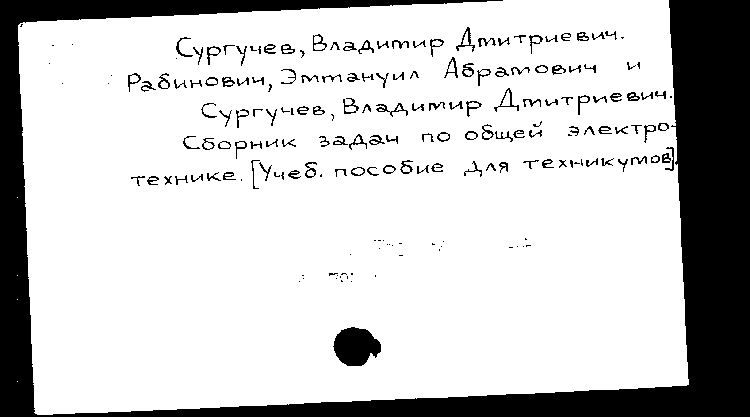 Сургучев, Владимир Дмитриевич.
Рабинович, Эммануил Абрамович и
Сургучев, Владимир Дмитриевич.
Сборник задач по общей электро-
технике. [Учеб. пособие для техникумов].